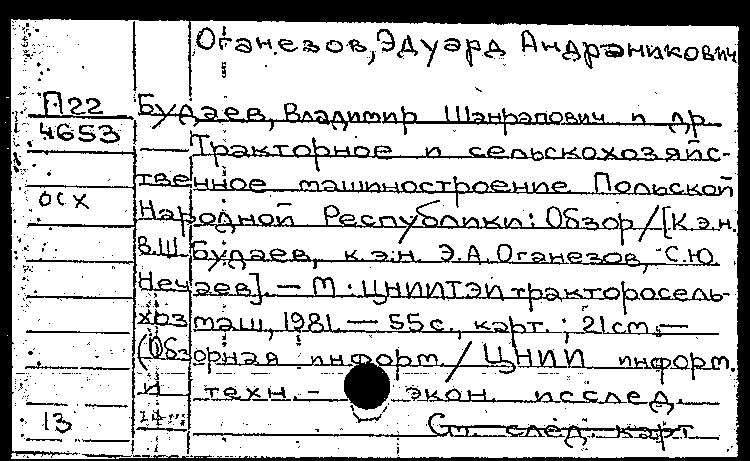 Оганезов, Эдуард Андраникович
П22
4653
Будаев, Владимир Шанрапович и др.
Тракторное и сельскохозяйс-
твенное машиностроение Польской
осх
Народной Республики: Обзор / [К.э.н.
В.Ш. Будаев, к.э.н. Э.А. Оганезов, С.Ю.
Нечаев]. — М.: ЦНИИТЭИтракторосель-
хозмаш, 1981. — 55 с., карт.; 21 см. —
(Обзорная информ. / ЦНИИ информ.
и техн.-экон. исслед.
13
См. след. карт.